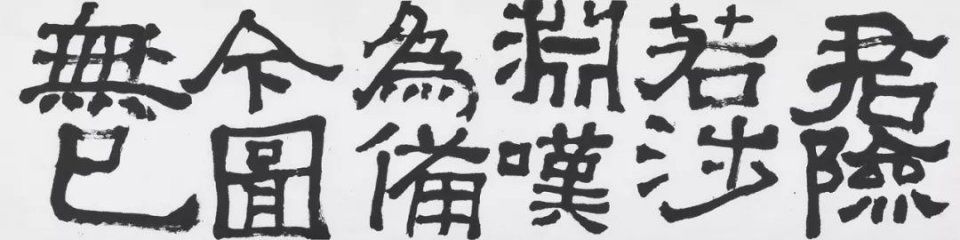 君險
若涉
淵嘆
為備
今圖
無已